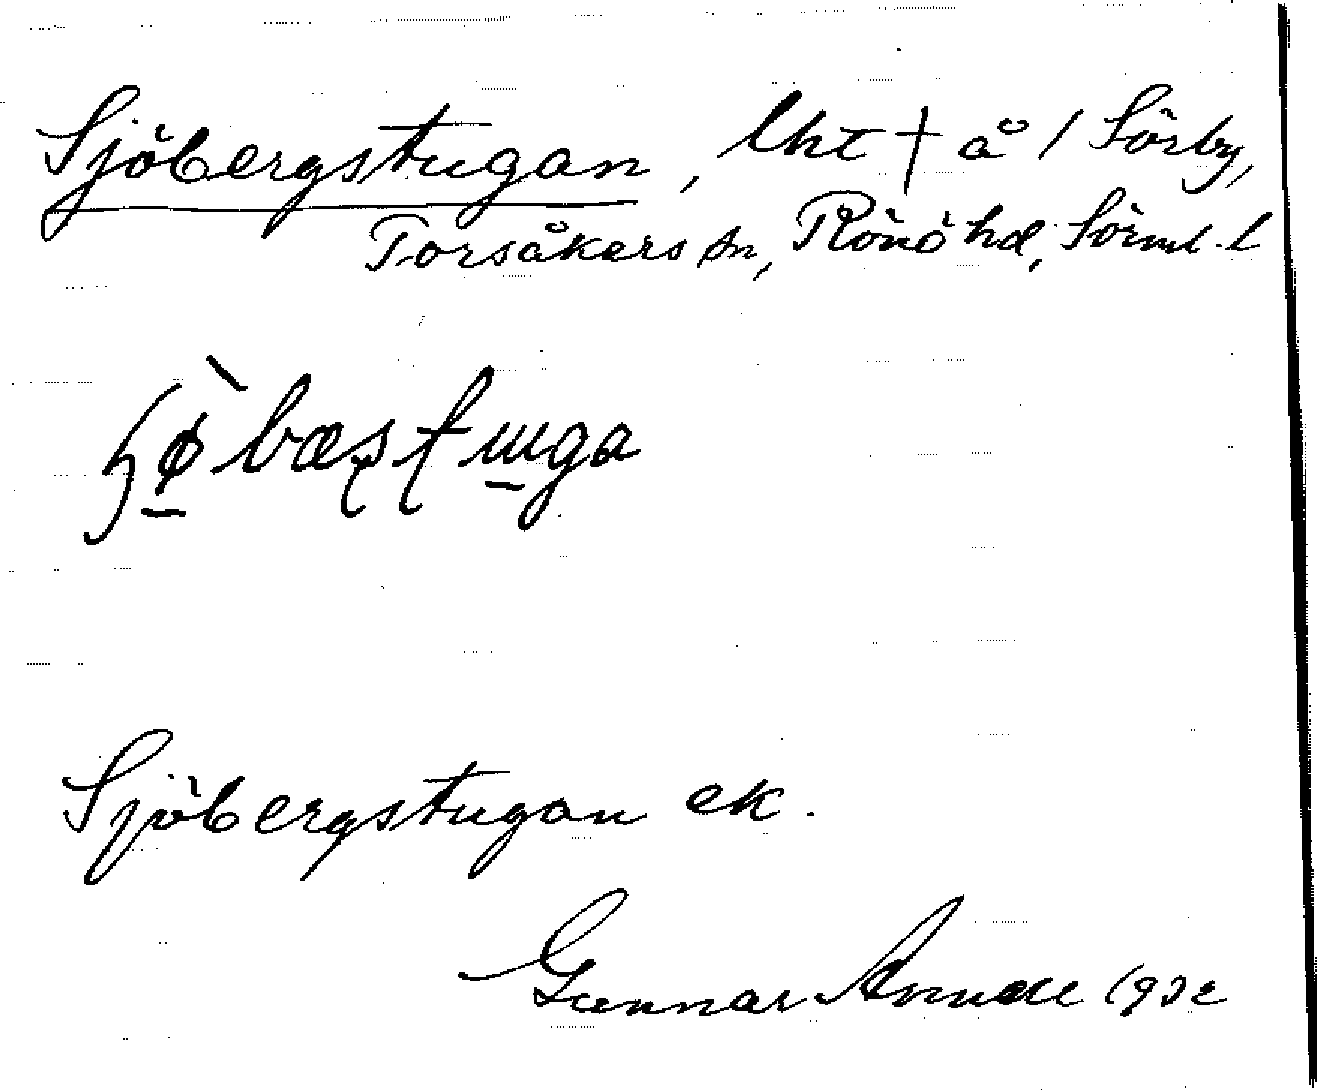 Sjöbergstugan, lht † å 1 Sörby,
Torsåkers sn, Rönö hd, Sörml. l
Sjöbergstugan ek.
Gunnar